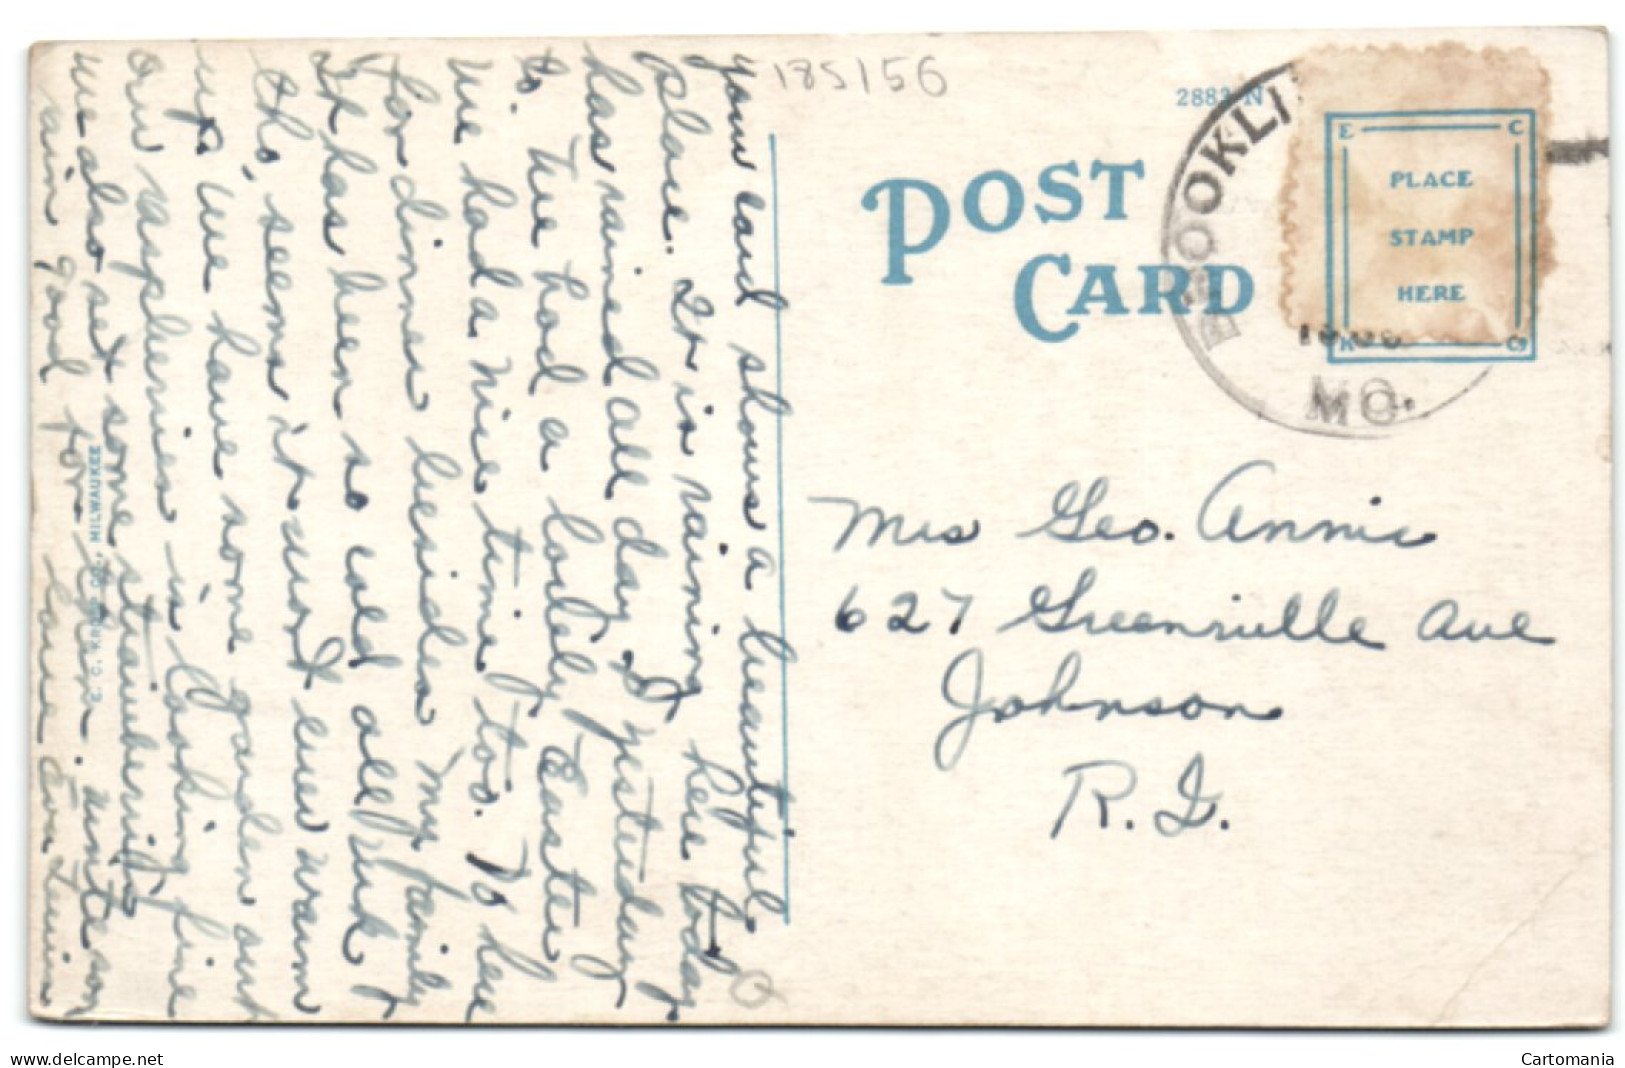 185156
2883-N
POST
CARD
BROOKLI
MO.
E C
PLACE
STAMP
HERE
K Co
Mrs Geo. Annis
627 Greenville Ave
Johnson
R.I.
your card shows a beautiful
place. It is raining here today
has rained all day & yesterday
to. We had a lovely Easter
We had a nice time too. 10 here
for dinner besides my family
It has been so cold all wk &
tho, seems it wont ever warm
up. We have some garden out
our raspberries is looking fine
we also set some strawberries
rain good for them. write soon
love Eva Lewis
E. C. KROPP CO., MILWAUKEE